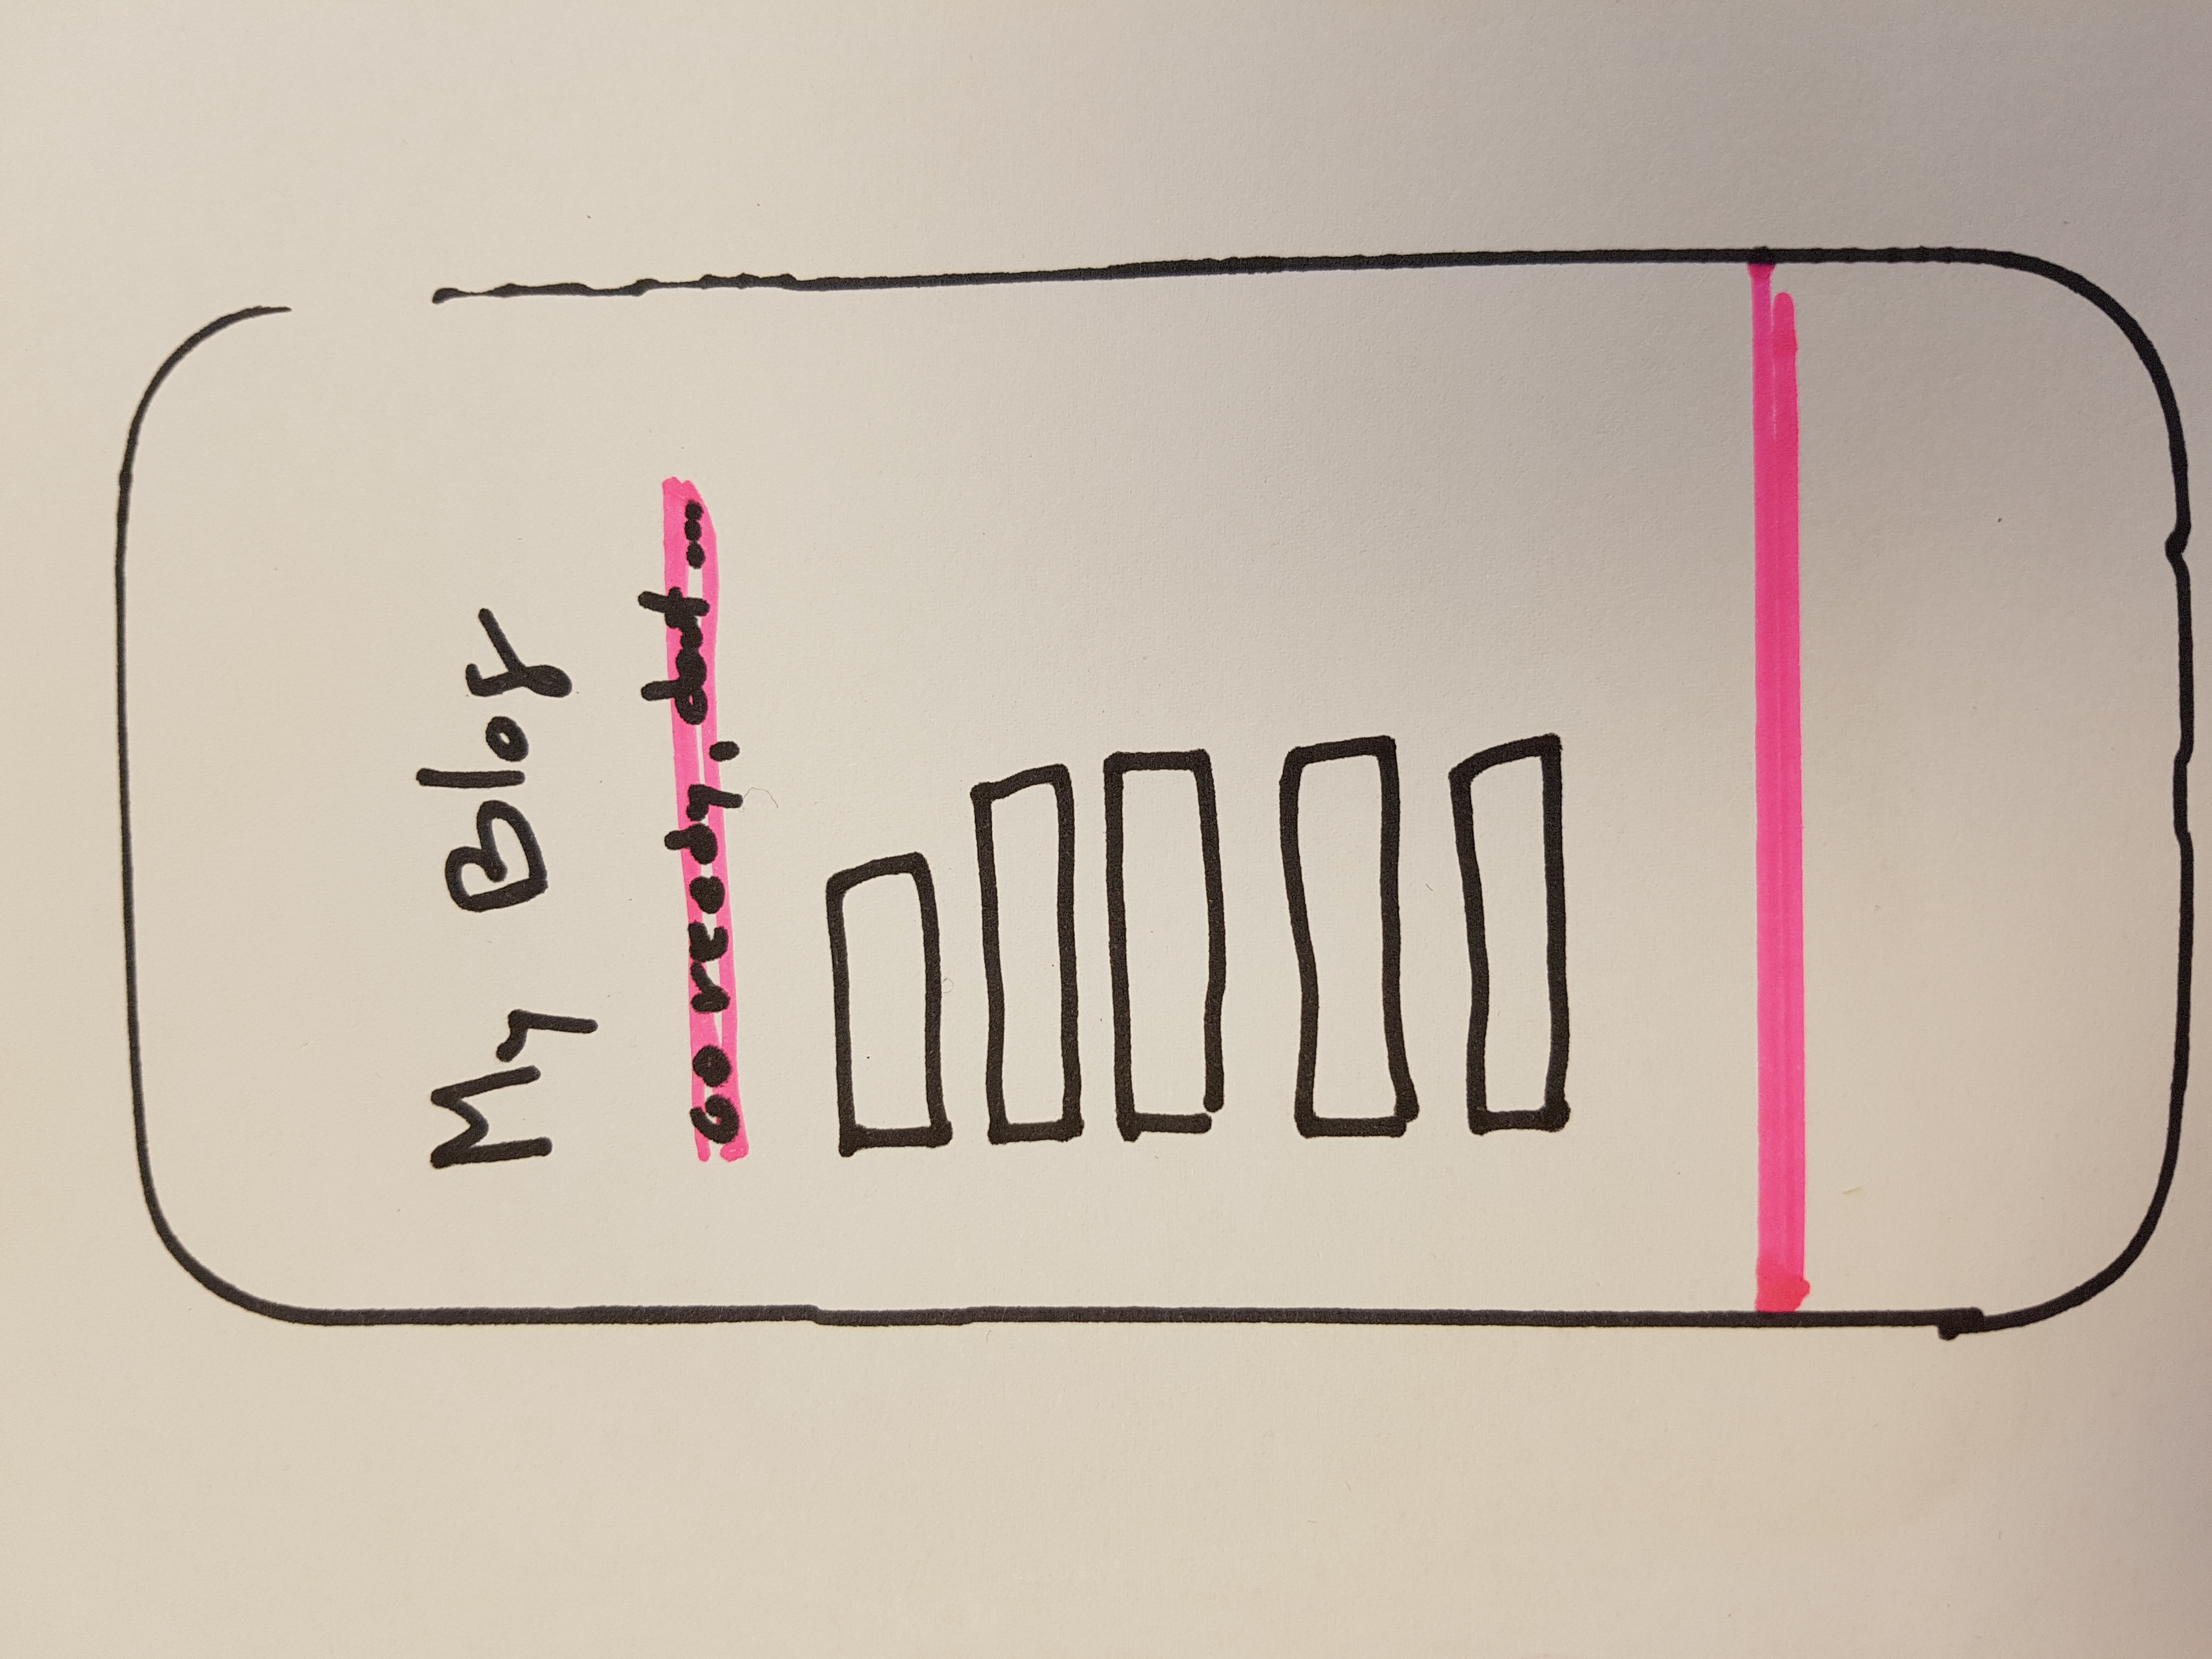 My Blog
Go ready, dont...